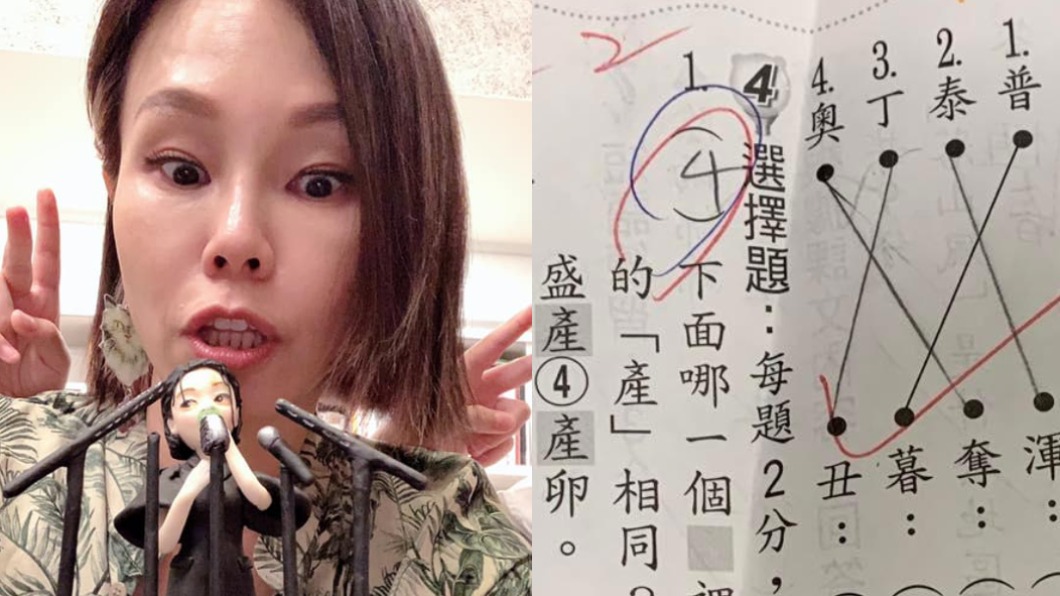 1. 普
2. 泰
3. 丁
4. 奧
渾
奪：
暮：
丑：
4 選擇題：每題2分，
1. (4) 下面哪一個
的「產」相同？
盛產④產卵。
-2